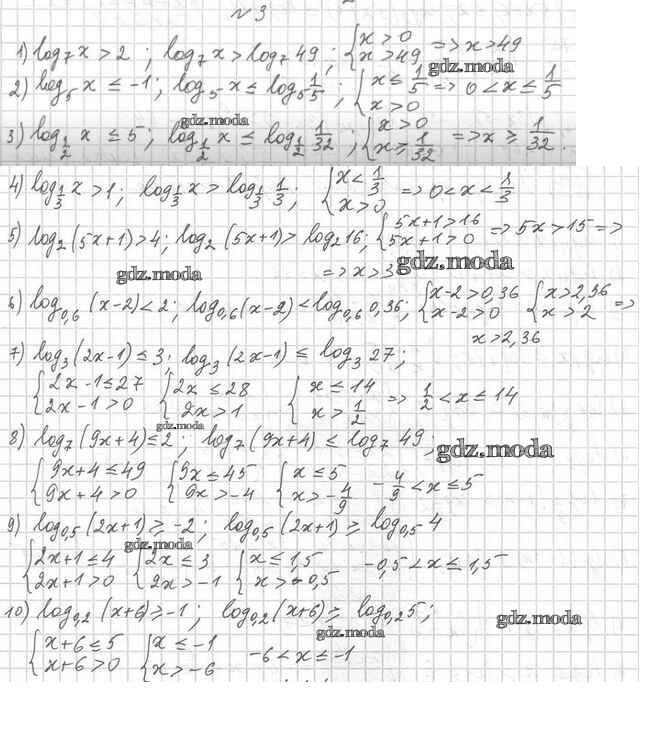 №3
1) log₇x > 2 ; log₇x > log₇49 ; {x > 0 x > 49 => x > 49
gdz.moda
2) log₅x ≤ -1; log₅x ≤ log₅ 1/5 ; {x ≤ 1/5 x > 0 => 0 < x ≤ 1/5
gdz.moda
3) log_{1/2} x ≤ 5; log_{1/2} x ≤ log_{1/2} 1/32 ; {x > 0 x ≥ 1/32 => x ≥ 1/32.
4) log_{1/3} x > 1; log_{1/3} x > log_{1/3} 1/3; {x < 1/3 x > 0 => 0 < x < 1/3
5) log₂(5x+1) > 4; log₂(5x+1) > log₂16; {5x+1 > 16 5x+1 > 0 => 5x > 15 =>
gdz.moda => x > 3 gdz.moda
6) log_{0,6}(x-2) < 2; log_{0,6}(x-2) < log_{0,6} 0,36; {x-2 > 0,36 x-2 > 0 {x > 2,36 x > 2 =>
x > 2,36
7) log₃(2x-1) ≤ 3; log₃(2x-1) ≤ log₃27;
{2x-1 ≤ 27 2x-1 > 0 {2x ≤ 28 2x > 1 {x ≤ 14 x > 1/2 => 1/2 < x ≤ 14
gdz.moda
8) log₇(9x+4) ≤ 2; log₇(9x+4) ≤ log₇49;
gdz.moda
{9x+4 ≤ 49 9x+4 > 0 {9x ≤ 45 9x > -4 {x ≤ 5 x > -4/9 -4/9 < x ≤ 5
9) log_{0,5}(2x+1) ≥ -2; log_{0,5}(2x+1) ≥ log_{0,5}4
gdz.moda
{2x+1 ≤ 4 2x+1 > 0 {2x ≤ 3 2x > -1 {x ≤ 1,5 x > -0,5 -0,5 < x ≤ 1,5
10) log_{0,2}(x+6) ≥ -1; log_{0,2}(x+6) ≥ log_{0,2}5;
gdz.moda gdz.moda
{x+6 ≤ 5 x+6 > 0 {x ≤ -1 x > -6 -6 < x ≤ -1